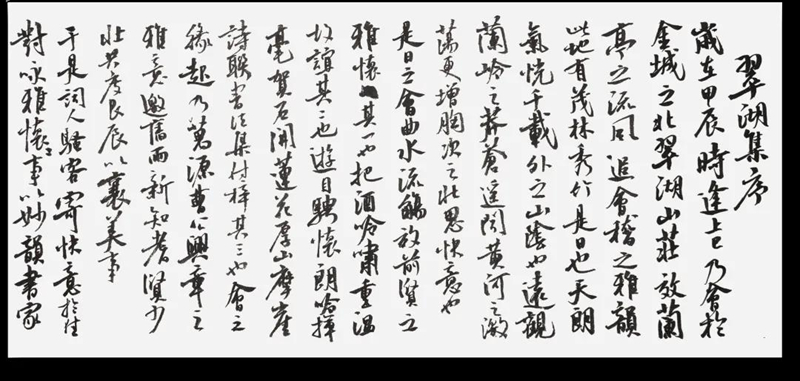 翠湖集序
歲在甲辰時逢上巳乃會於
金城之北翠湖山莊效蘭
亭之流風追會稽之雅韻
此地有茂林秀竹是日也天朗
氣恍千載外之山陰也遠觀
蘭岭之莽蒼遥閱黄河之激
蕩更增胸次之壯思快意也
是日之會曲水流觴放前賢之
雅懷其一也把酒吟嘯重温
故誼其二也遊目騁懷朗吟揮
毫賀石開蓮花厚山摩崖
詩聯書法集付梓其三也會之
緣起乃源曹公興章之
雅意邀舊雨新知耆賢少
壯共度良辰以襄美事
于是詞人騷客寄快意於佳
對咏雅懷事以妙韻書家